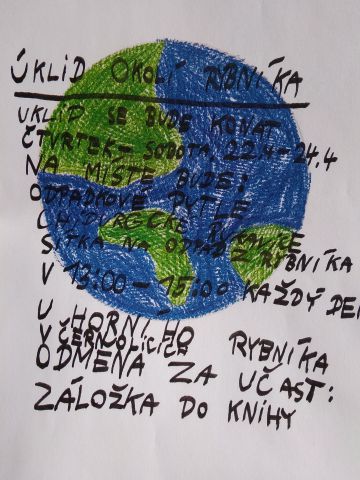 ÚKLID OKOLÍ RYBNÍKA
UKLID SE BUDE KONAT
ČTVRTEK - SOBOTA 22.4 - 24.4
NA MÍSTĚ BUDE:
ODPADKOVÉ PYTLE
RUKAVICE
SÍTKA NA ODPAD Z RYBNÍKA
V 13:00 - 15:00 KAŽDÝ DEN
U HORNÍHO RYBNÍKA
V ČERNOLICÍCH
ODMĚNA ZA UČAST:
ZÁLOŽKA DO KNIHY